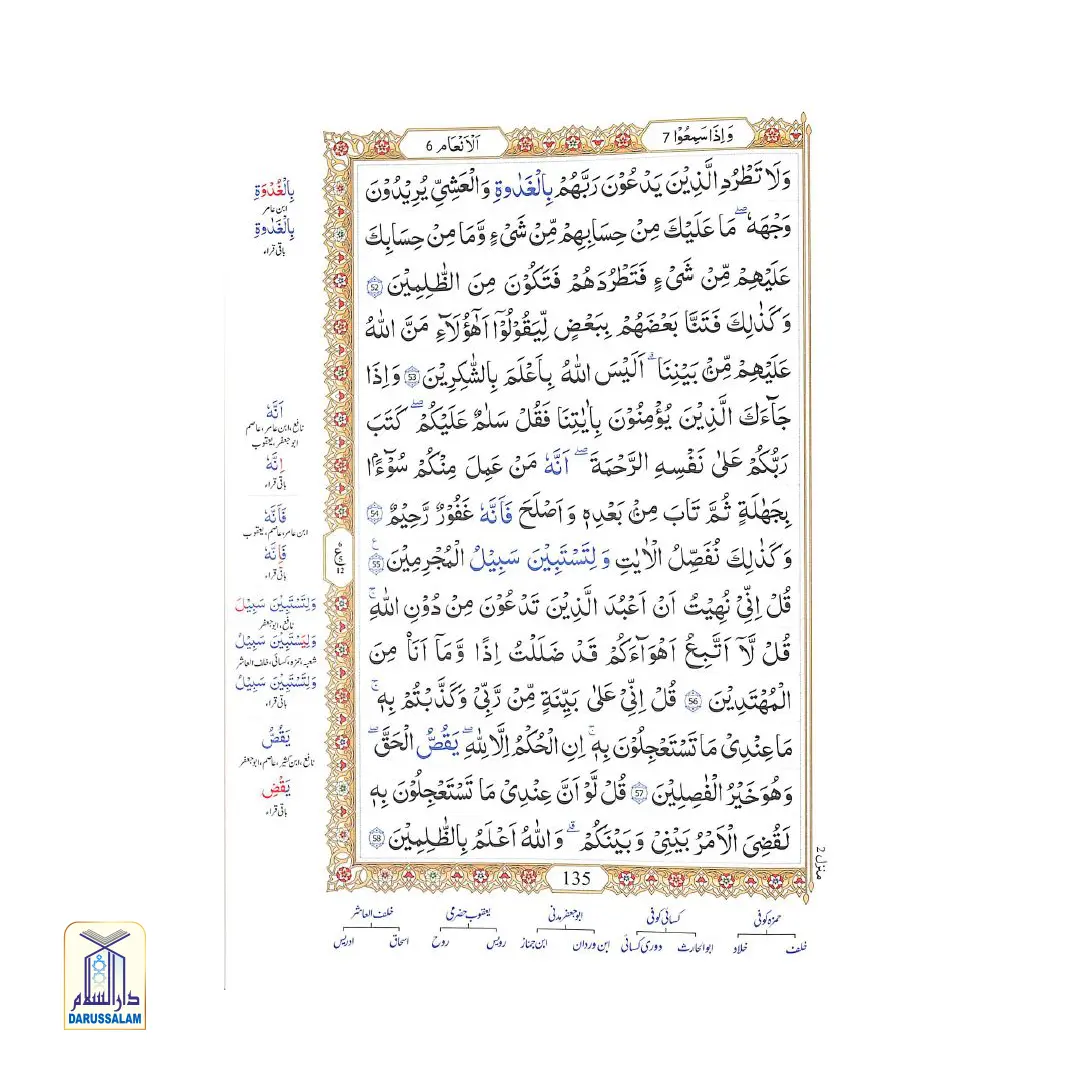 وَاِذَا سَمِعُوْا 7
اَلْاَنْعَام 6
وَلَا تَطْرُدِ الَّذِيْنَ يَدْعُوْنَ رَبَّهُمْ بِالْغَدٰوةِ وَالْعَشِيِّ يُرِيْدُوْنَ
وَجْهَهٗ ؕ مَا عَلَيْكَ مِنْ حِسَابِهِمْ مِّنْ شَیْءٍ وَّمَا مِنْ حِسَابِكَ
عَلَيْهِمْ مِّنْ شَیْءٍ فَتَطْرُدَهُمْ فَتَكُوْنَ مِنَ الظّٰلِمِيْنَ 52
وَكَذٰلِكَ فَتَنَّا بَعْضَهُمْ بِبَعْضٍ لِّيَقُوْلُوْٓا اَهٰٓؤُلَآءِ مَنَّ اللّٰهُ
عَلَيْهِمْ مِّنْۢ بَيْنِنَا ؕ اَلَيْسَ اللّٰهُ بِاَعْلَمَ بِالشّٰكِرِيْنَ 53 وَاِذَا
جَآءَكَ الَّذِيْنَ يُؤْمِنُوْنَ بِاٰيٰتِنَا فَقُلْ سَلٰمٌ عَلَيْكُمْ ۖ كَتَبَ
رَبُّكُمْ عَلٰى نَفْسِهِ الرَّحْمَةَ ۖ اَنَّهٗ مَنْ عَمِلَ مِنْكُمْ سُوْٓءًۢا
بِجَهٰلَةٍ ثُمَّ تَابَ مِنْۢ بَعْدِهٖ وَاَصْلَحَ فَاَنَّهٗ غَفُوْرٌ رَّحِيْمٌ 54
وَكَذٰلِكَ نُفَصِّلُ الْاٰيٰتِ وَلِتَسْتَبِيْنَ سَبِيْلُ الْمُجْرِمِيْنَ 55
قُلْ اِنِّيْ نُهِيْتُ اَنْ اَعْبُدَ الَّذِيْنَ تَدْعُوْنَ مِنْ دُوْنِ اللّٰهِ ۚ
قُلْ لَّآ اَتَّبِعُ اَهْوَآءَكُمْ قَدْ ضَلَلْتُ اِذًا وَّمَآ اَنَا۠ مِنَ
الْمُهْتَدِيْنَ 56 قُلْ اِنِّيْ عَلٰى بَيِّنَةٍ مِّنْ رَّبِّيْ وَكَذَّبْتُمْ بِهٖ ۚ
مَا عِنْدِيْ مَا تَسْتَعْجِلُوْنَ بِهٖ ۚ اِنِ الْحُكْمُ اِلَّا لِلّٰهِ ۖ يَقُصُّ الْحَقَّ ۖ
وَهُوَ خَيْرُ الْفٰصِلِيْنَ 57 قُلْ لَّوْ اَنَّ عِنْدِيْ مَا تَسْتَعْجِلُوْنَ بِهٖ
لَقُضِيَ الْاَمْرُ بَيْنِيْ وَبَيْنَكُمْ ؕ وَاللّٰهُ اَعْلَمُ بِالظّٰلِمِيْنَ 58
بِالْغُدْوَةِ
ابن عامر
بِالْغَدٰوةِ
باقی قراء
اَنَّهٗ
نافع، ابن عامر، عاصم
ابوجعفر، یعقوب
اِنَّهٗ
باقی قراء
فَاَنَّهٗ
ابن عامر، عاصم، یعقوب
فَاِنَّهٗ
باقی قراء
ع
12
وَلِتَسْتَبِيْنَ سَبِيْلَ
نافع، ابوجعفر
وَلِيَسْتَبِيْنَ سَبِيْلُ
شعبہ، حمزہ، کسائی، خلف العاشر
وَلِتَسْتَبِيْنَ سَبِيْلُ
باقی قراء
يَقُصُّ
نافع، ابن کثیر، عاصم، ابوجعفر
يَقْضِ
باقی قراء
منزل 2
135
حمزہ کوفی کسائی کوفی ابوجعفر مدنی یعقوب حضرمی خلف العاشر
خلف خلاد ابوالحارث دوری کسائی ابن وردان ابن جماز رویس روح اسحاق ادریس
دارالسلام
DARUSSALAM